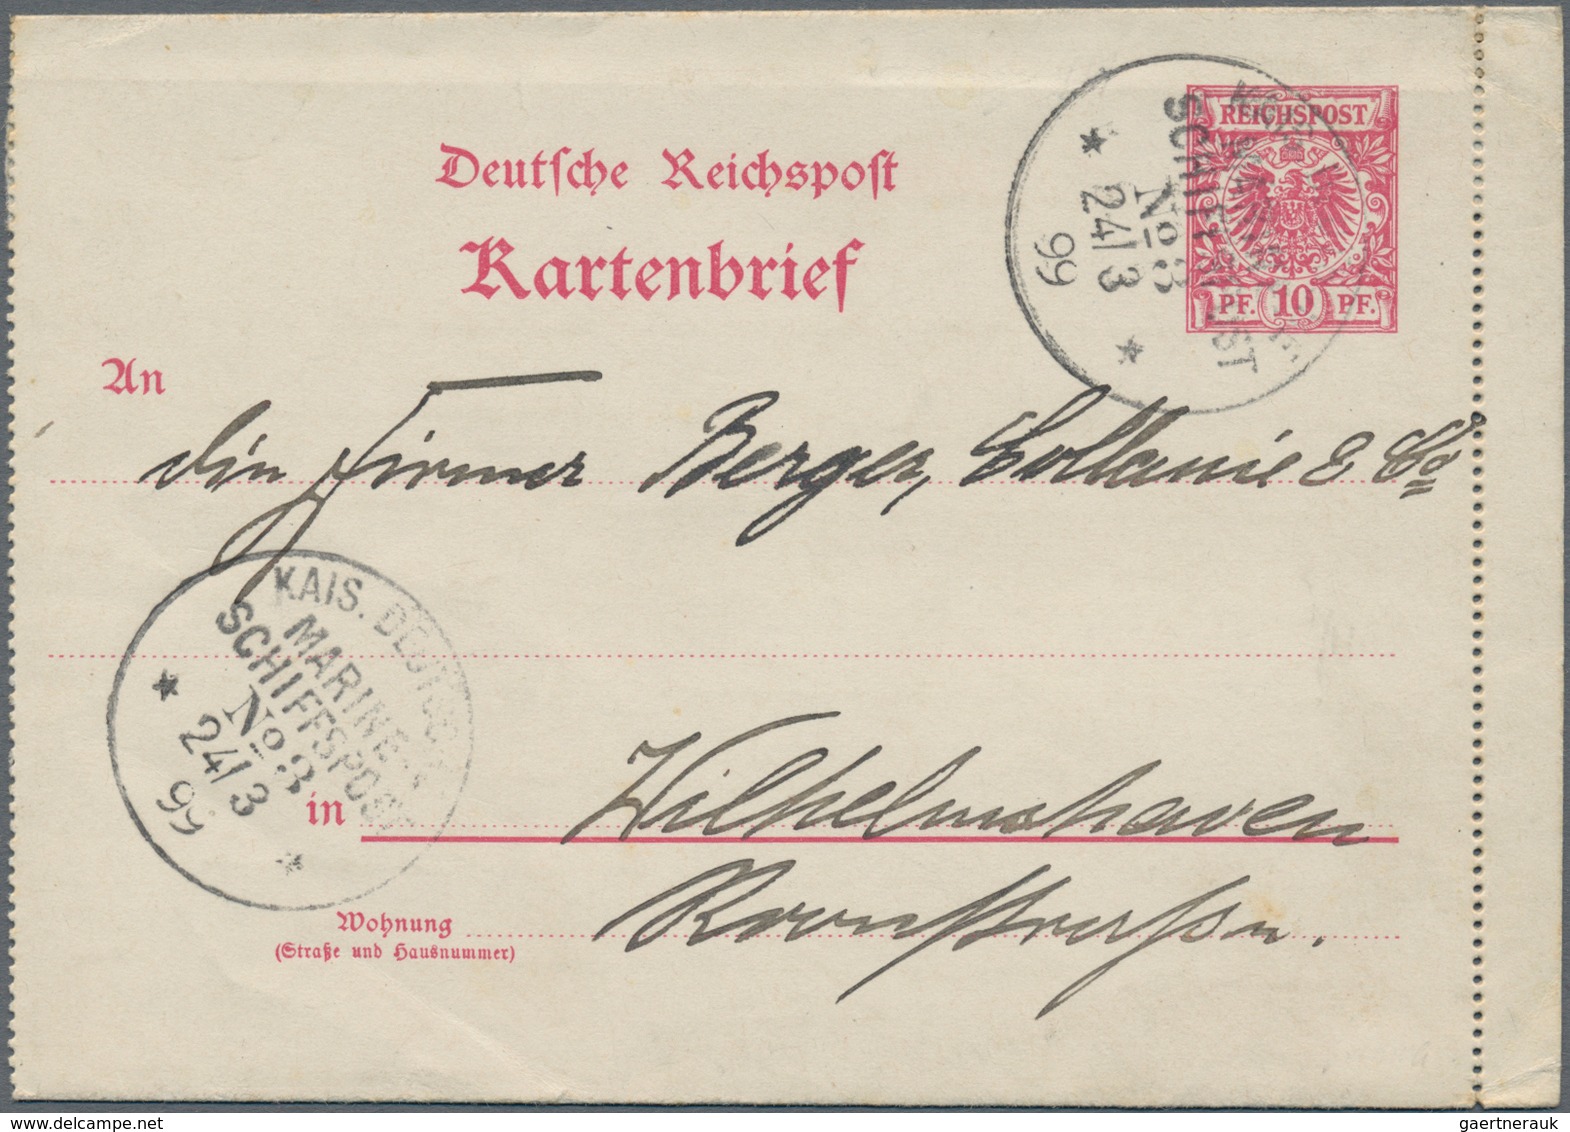 REICHSPOST
PF. 10 PF.
SCHIFFSPOST
No 3
24/3
99
Deutsche Reichspost
Kartenbrief
An
die Firma Berger, & Co
KAIS. DEUTSCHE
MARINE-
SCHIFFSPOST
No 3
24/3
99
in Wilhelmshaven
Wohnung Roonstraße.
(Straße und Hausnummer)
gaertnerauk @ delcampe.net